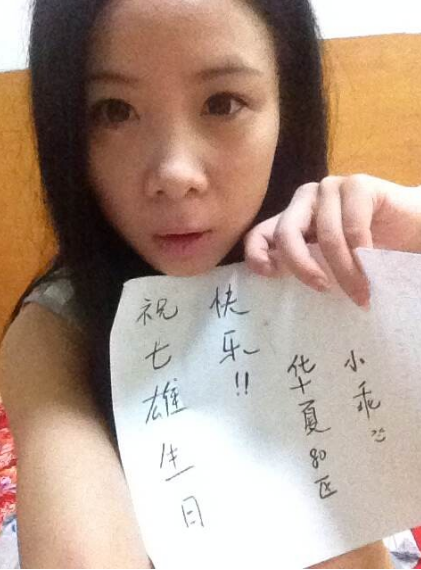 祝七雄生日
快乐!!
华夏80区
小乖